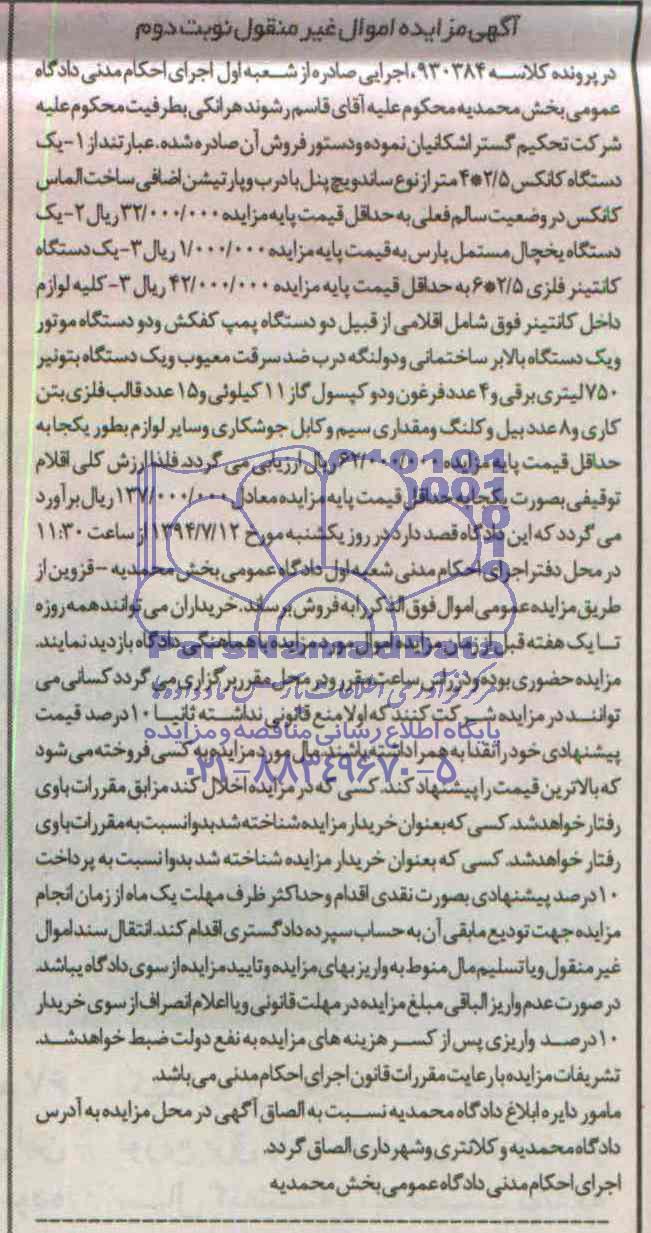 آگهی مزایده اموال غیر منقول نوبت دوم
در پرونده کلاسه ۹۳۰۳۸۴، اجرایی صادره از شعبه اول اجرای احکام مدنی دادگاه
عمومی بخش محمدیه محکوم علیه آقای قاسم رشوند هرانکی بطرفیت محکوم علیه
شرکت تحکیم گستر اشکانیان نموده و دستور فروش آن صادره شده. عبارتند از ۱-یک
دستگاه کانکس ۲/۵*۴ متر از نوع ساندویچ پنل با درب و پارتیشن اضافی ساخت الماس
کانکس در وضعیت سالم فعلی به حداقل قیمت پایه مزایده ۳۲/۰۰۰/۰۰۰ ریال ۲-یک
دستگاه یخچال مستمل پارس به قیمت پایه مزایده ۱/۰۰۰/۰۰۰ ریال ۳-یک دستگاه
کانتینر فلزی ۲/۵*۶ به حداقل قیمت پایه مزایده ۴۲/۰۰۰/۰۰۰ ریال ۳-کلیه لوازم
داخل کانتینر فوق شامل اقلامی از قبیل دو دستگاه پمپ کفکش ودو دستگاه موتور
ویک دستگاه بالابر ساختمانی ودولنگه درب ضد سرقت معیوب ویک دستگاه بتونیر
۷۵۰ لیتری برقی و۴ عدد فرغون ودو کپسول گاز ۱۱ کیلوئی و۱۵ عدد قالب فلزی بتن
کاری و۸ عدد بیل و کلنگ ومقداری سیم وکابل جوشکاری وسایر لوازم بطور یکجا به
حداقل قیمت پایه مزایده ۶۲/۰۰۰/۰۰۰ ریال ارزیابی می گردد. فلذا ارزش کلی اقلام
توقیفی بصورت یکجا به حداقل قیمت پایه مزایده معادل ۱۳۷/۰۰۰/۰۰۰ ریال برآورد
می گردد که این دادگاه قصد دارد در روز یکشنبه مورخ ۱۳۹۴/۷/۱۲ از ساعت ۱۱:۳۰
در محل دفتر اجرای احکام مدنی شعبه اول دادگاه عمومی بخش محمدیه -قزوین از
طریق مزایده عمومی اموال فوق الذکر را به فروش برساند. خریداران می توانند همه روزه
تا یک هفته قبل از زمان مزایده اموال مورد مزایده با هماهنگی دادگاه بازدید نمایند.
ParsNamadData
مزایده حضوری بوده ودر راس ساعت مقرر ودر محل مقرر برگزاری می گردد کسانی می
توانند در مزایده شرکت کنند که اولا منع قانونی نداشته ثانیا ۱۰ درصد قیمت
پایگاه اطلاع رسانی مناقصه و مزایده
پیشنهادی خود را نقدا به همراه داشته باشند. مال مورد مزایده به کسی فروخته می شود
۰۲۱-۸۸۳۴۹۶۷۰-۵
که بالاترین قیمت را پیشنهاد کند. کسی که در مزایده اخلال کند مزابق مقررات باوی
رفتار خواهدشد. کسی که بعنوان خریدار مزایده شناخته شد بدوا نسبت به مقررات باوی
رفتار خواهدشد. کسی که بعنوان خریدار مزایده شناخته شد بدوا نسبت به پرداخت
۱۰ درصد پیشنهادی بصورت نقدی اقدام وحداکثر ظرف مهلت یک ماه از زمان انجام
مزایده جهت تودیع مابقی آن به حساب سپرده دادگستری اقدام کند. انتقال سند اموال
غیر منقول ویا تسلیم مال منوط به واریز بهای مزایده و تایید مزایده از سوی دادگاه یباشد.
در صورت عدم واریز الباقی مبلغ مزایده در مهلت قانونی ویا اعلام انصراف از سوی خریدار
۱۰ درصد واریزی پس از کسر هزینه های مزایده به نفع دولت ضبط خواهدشد.
تشریفات مزایده با رعایت مقررات قانون اجرای احکام مدنی می باشد.
مامور دایره ابلاغ دادگاه محمدیه نسبت به الصاق آگهی در محل مزایده به آدرس
دادگاه محمدیه و کلانتری وشهرداری الصاق گردد.
اجرای احکام مدنی دادگاه عمومی بخش محمدیه